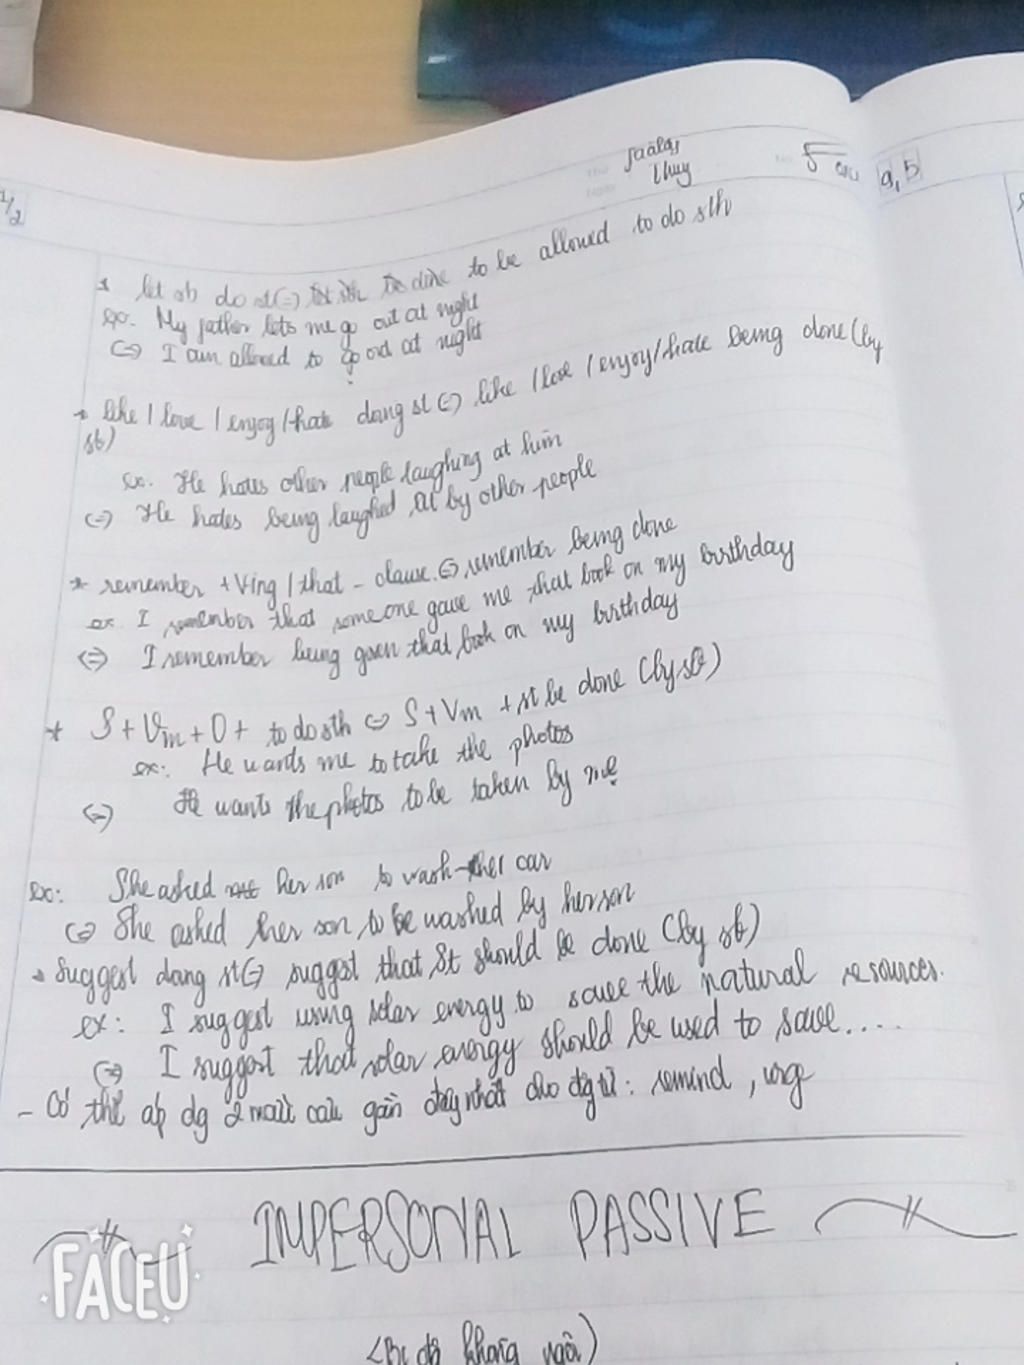 1/2
5 câu a, b
* let sb do st (=) to be allowed to do sth
ex. My father lets me go out at night
(=) I am allowed to go out at night
* like / love / enjoy / hate doing st (=) like / love / enjoy / hate being done (by
sb)
ex. He hates other people laughing at him
(=) He hates being laughed at by other people
* remember + Ving / that - clause. (=) remember being done
ex. I remember that someone gave me that book on my birthday
(=) I remember being given that book on my birthday
* S + Vm + O + to do sth (=) S + Vm + st be done (by sb)
ex: He wants me to take the photos
(=) He wants the photos to be taken by me
ex: She asked her son to wash her car
(=) She asked her son to be washed by her son
* Suggest doing st (=) suggest that St should be done (by sb)
ex: I suggest using solar energy to save the natural resources.
(=) I suggest that solar energy should be used to save....
- Có thể áp dg 2 mẫu câu gần đây nhất cho đg từ: remind, urge
IMPERSONAL PASSIVE
FACEU
(Bị độ không ngôi)